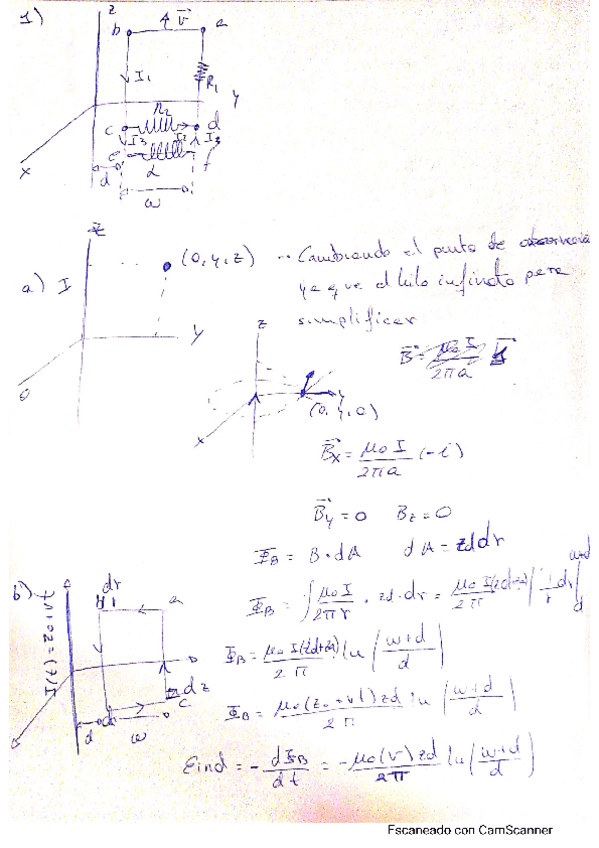 1)
z
b
4 v⃗
a
I₁
R₁
y
R₂
c
d
I₃
I₂
I₃
e
L
f
x
d
w
z
(0, y, z) -- Cambiando el punto de
a) I
ya que el hilo infinito para
simplificar
y
z
B⃗ = μ₀ I / 2πa
y
(0, y, 0)
x
B⃗x = μ₀ I / 2πa (-i)
B⃗y = 0 Bz = 0
Φ_B = B · dA dA = zd dr
b)
dr
a
Φ_B = ∫ μ₀ I / 2πr · zd · dr = μ₀ I / 2π ∫ 1/r dr
w+d
d
Φ_B = μ₀ I / 2π ln (w+d / d)
dz
c
d
w
Φ_B = μ₀ (z₀ + vt) zd / 2π ln (w+d / d)
Eind = - dΦ_B / dt = - μ₀ (v) zd / 2π ln (w+d / d)
Escaneado con CamScanner